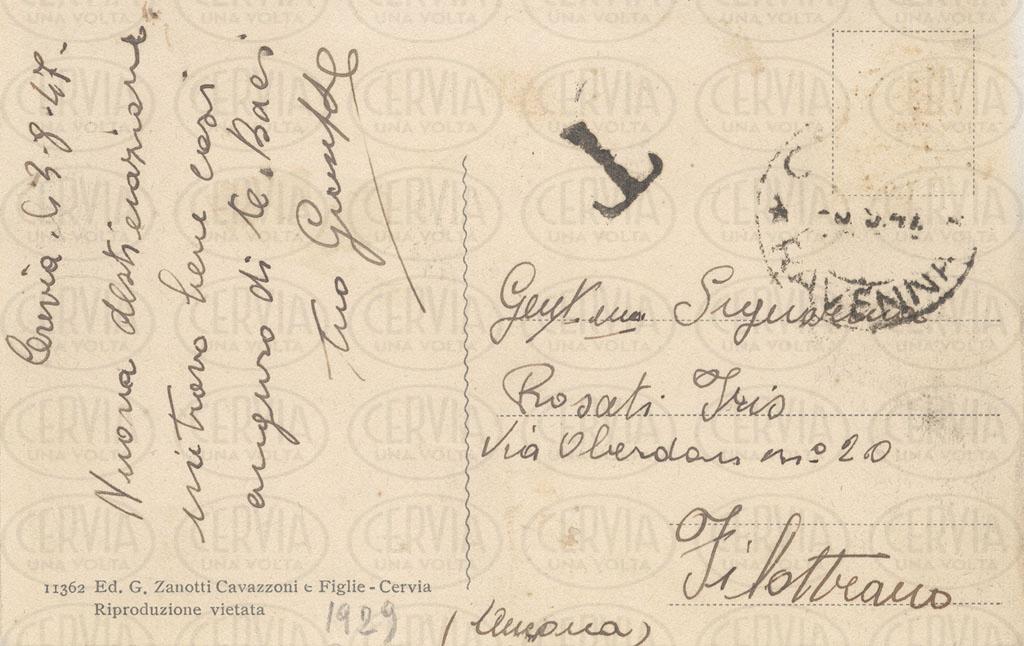 Cervia li 3-8-47-
Nuova destinazione
mi trovo bene così
auguro di te. Baci
tuo
T
RAVENNA
Gent.ma Signorina
Rosati Iris
Via Oberdan nº 20
Filottrano
(Ancona)
11362 Ed. G. Zanotti Cavazzoni e Figlie - Cervia
Riproduzione vietata
1929
CERVIA
UNA VOLTA